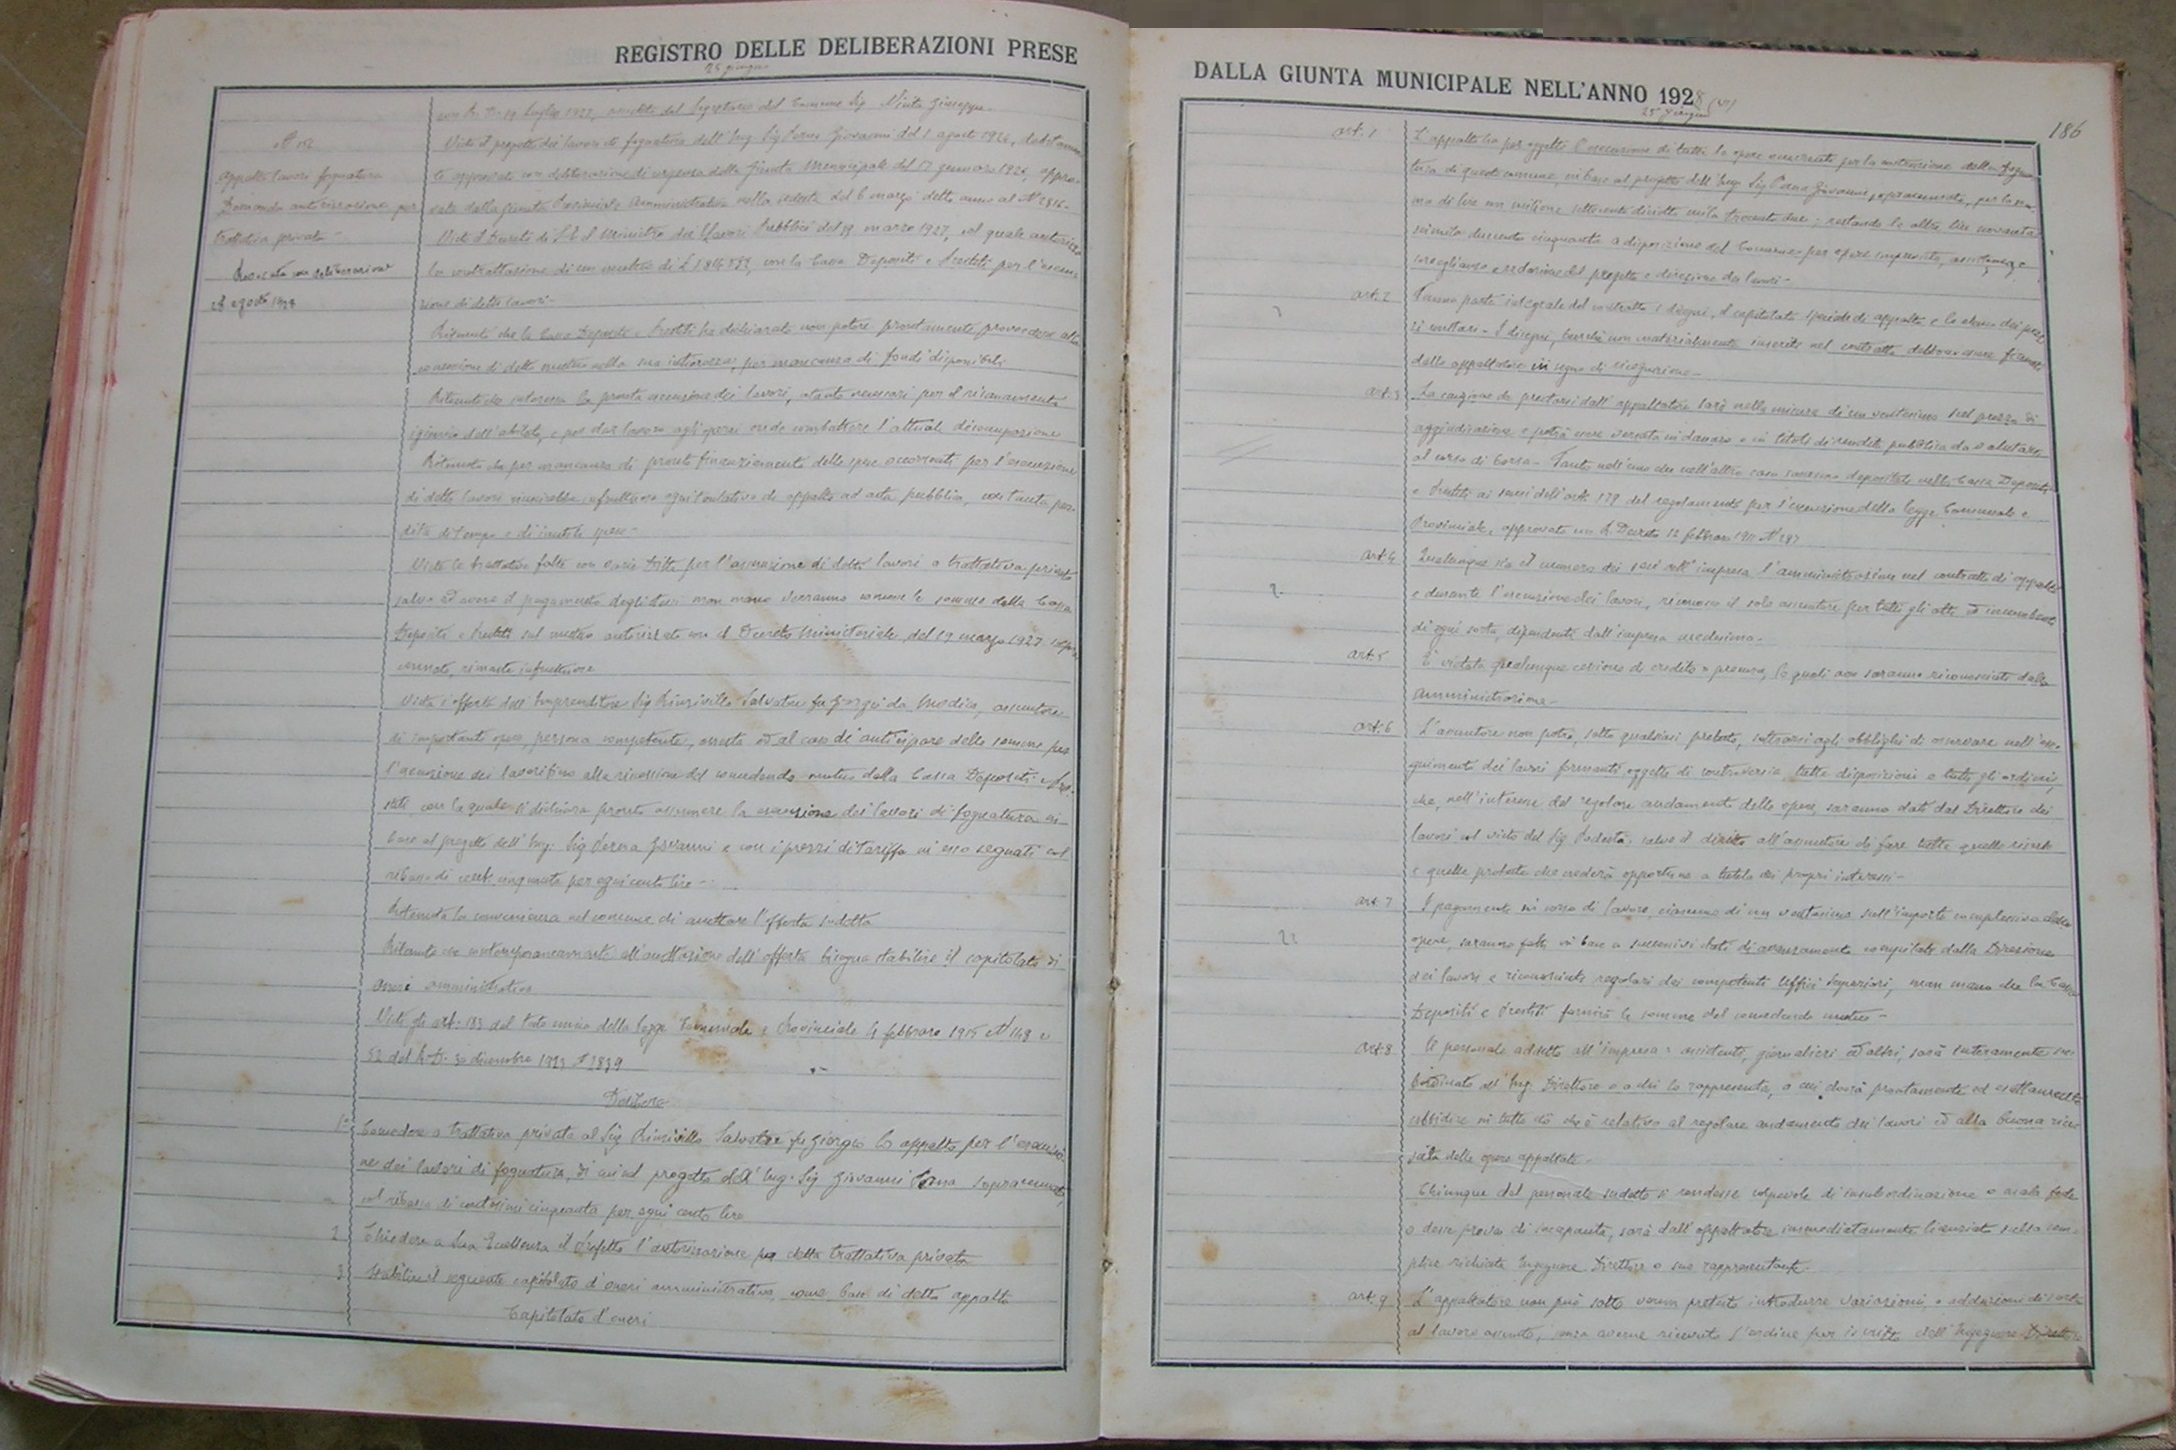 REGISTRO DELLE DELIBERAZIONI PRESE
25 giugno
con R. D. 19 luglio 1927, assistito dal Segretario del Comune Sig.
N 152
appalto lavori fognatura
Domanda autorizzazione per
trattativa privata
Revocata con deliberazione
28 agosto 1928
Visto il progetto dei lavori di fognatura dell'Ing. Sig. Perna Giovanni del 1 agosto 1926, debitamen-
te approvato con deliberazione di urgenza della Giunta Municipale del 17 gennaro 1926, appro-
vata dalla Giunta Provinciale Amministrativa nella seduta del 6 marzo detto anno al N 2816-
Visto il Decreto di S. E. il Ministro dei Lavori Pubblici del 19 marzo 1927, col quale autorizza
la contrattazione di un mutuo di £ 1.814.552, con la Cassa Depositi e Prestiti per l'esecu
zione di detti lavori-
Ritenuto che la Cassa Depositi e Prestiti ha dichiarato non potere prontamente provvedere alla
concessione di detto mutuo nella sua interezza, per mancanza di fondi disponibili
Ritenuto che interessa la pronta esecuzione dei lavori, tanto necessari per il risanamento
igienico dell'abitato, e per dar lavoro agli operai onde combattere l'attuale disoccupazione
Ritenuto che per mancanza di pronto finanziamento delle spese occorrenti per l'esecuzione
di detti lavori riuscirebbe infruttuoso ogni tentativo di appalto ad asta pubblica, con tanta per-
dita di tempo e di inutili spese-
Viste le trattative fatte con varie ditte per l'assunzione di detti lavori a trattativa privata
salvo ad avere il pagamento degli stessi man mano verranno concesse le somme dalla Cassa
Depositi e Prestiti sul mutuo autorizzato con il Decreto Ministeriale del 19 marzo 1927
cennato, rimaste infruttuose
Vista l'offerta dell'Imprenditore Sig. Rinzivillo Salvatore fu Giorgio da Modica, assuntore
di importanti opere, persona competente, onesta ed al caso di anticipare delle somme per
l'esecuzione dei lavori fino alla riscossione del concedendo mutuo della Cassa Depositi e Pre-
stiti, con la quale si dichiara pronto assumere la esecuzione dei lavori di fognatura in
base al progetto dell'Ing. Sig. Perna Giovanni e con i prezzi di tariffa in esso segnati col
ribasso di cent. cinquanta per ogni cento lire-
Ritenuta la convenienza nel comune di accettare l'offerta sudetta
Ritenuto che contemporaneamente all'accettazione dell'offerta bisogna stabilire il capitolato di
oneri amministrativo
Visti gli art. 183 del Testo unico della legge Comunale e Provinciale 4 febbraro 1915 N 148 e
52 del R. D. 30 dicembre 1923 N 2839
Delibera
1° Concedere a trattativa privata al Sig Rinzivillo Salvatore fu Giorgio lo appalto per l'esecuzio-
ne dei lavori di fognatura, di cui al progetto dell'Ing. Sig Giovanni Perna sopracennato,
col ribasso di centesimi cinquanta per ogni cento lire
2 Chiedere a Sua Eccellenza il Prefetto l'autorizzazione per detta trattativa privata
3 Stabilire il seguente capitolato d'oneri amministrativo come base di detto appalto
Capitolato d'oneri
DALLA GIUNTA MUNICIPALE NELL'ANNO 1928 (VI)
25 Giugno
186
art. 1 L'appalto ha per oggetto l'esecuzione di tutte le opere occorrenti per la costruzione della fogna-
tura di questo comune, in base al progetto dell'Ing. Sig. Perna Giovanni, sopracennato, per la som-
ma di lire un milione settecento diciotto mila trecento due; restando le altre lire novanta
seimila duecento cinquanta a disposizione del Comune per opere impreviste, assistenza e
sorveglianza e redazione del progetto e direzione dei lavori-
art. 2 Fanno parte integrale del contratto i disegni, il capitolato speciale di appalto e lo elenco dei prez
zi unitari- I disegni, benchè non materialmente inseriti nel contratto debbono essere firmati
dallo appaltatore in segno di ricognizione-
art. 3 La cauzione da prestarsi dall'appaltatore sarà nella misura di un ventesimo sul prezzo di
aggiudicazione e potrà essere versata in danaro o in titoli di rendita pubblica da valutarsi
al corso di borsa- Tanto nell'uno che nell'altro caso saranno depositati nella Cassa Depositi
e Prestiti ai sensi dell'art. 179 del regolamento per l'esecuzione della legge Comunale e
Provinciale, approvato con R. Decreto 12 febbraro 1911 N 297
art. 4 Qualunque sia il numero dei soci nell'impresa l'amministrazione nel contratto di appalto
e durante l'esecuzione dei lavori, riconosce il solo assuntore per tutti gli atti ed incombenti
di ogni sorta dipendenti dall'impresa medesima-
art. 5 E' vietata qualunque cessione di credito o procura, le quali non saranno riconosciute dalla
amministrazione-
art. 6 L'assuntore non potrà, sotto qualsiasi pretesto, sottrarsi agli obblighi di osservare nell'ese-
guimento dei lavori formanti oggetto di controversia tutte disposizioni e tutti gli ordini,
che, nell'interesse del regolare andamento delle opere, saranno dati dal Direttore dei
lavori col visto del Sig. Podestà; salvo il diritto all'assuntore di fare tutte quelle riserve
e quelle proteste che crederà opportune a tutela dei propri interessi-
art. 7 I pagamenti in corso di lavoro, ciascuno di un ventesimo sull'importo complessivo delle
opere, saranno fatti in base a successivi stati di avanzamento compilati dalla Direzione
dei lavori e riconosciuti regolari dai competenti Uffici Superiori, man mano che la Cassa
Depositi e Prestiti fornirà le somme del concedendo mutuo-
art. 8 Il personale addetto all'impresa: assistenti, giornalieri ed altri, sarà interamente su-
bordinato all'Ing. Direttore o a chi lo rappresenta, a cui dovrà prontamente ed esattamente
ubbidire in tutto ciò che è relativo al regolare andamento dei lavori ed alla buona rieu
scita delle opere appaltate-
Chiunque del personale sudetto si rendesse colpevole di insubordinazione o mala fede
o desse prova di incapacità, sarà dall'appaltatore immediatamente licenziato sulla sem-
plice richiesta Ingegnere Direttore o suo rappresentante.
art. 9 L'appaltatore non può sotto verun pretesto introdurre variazioni, o addizioni di sorta
al lavoro assunto, senza averne ricevuto l'ordine per iscritto dell'Ingegnere Direttore